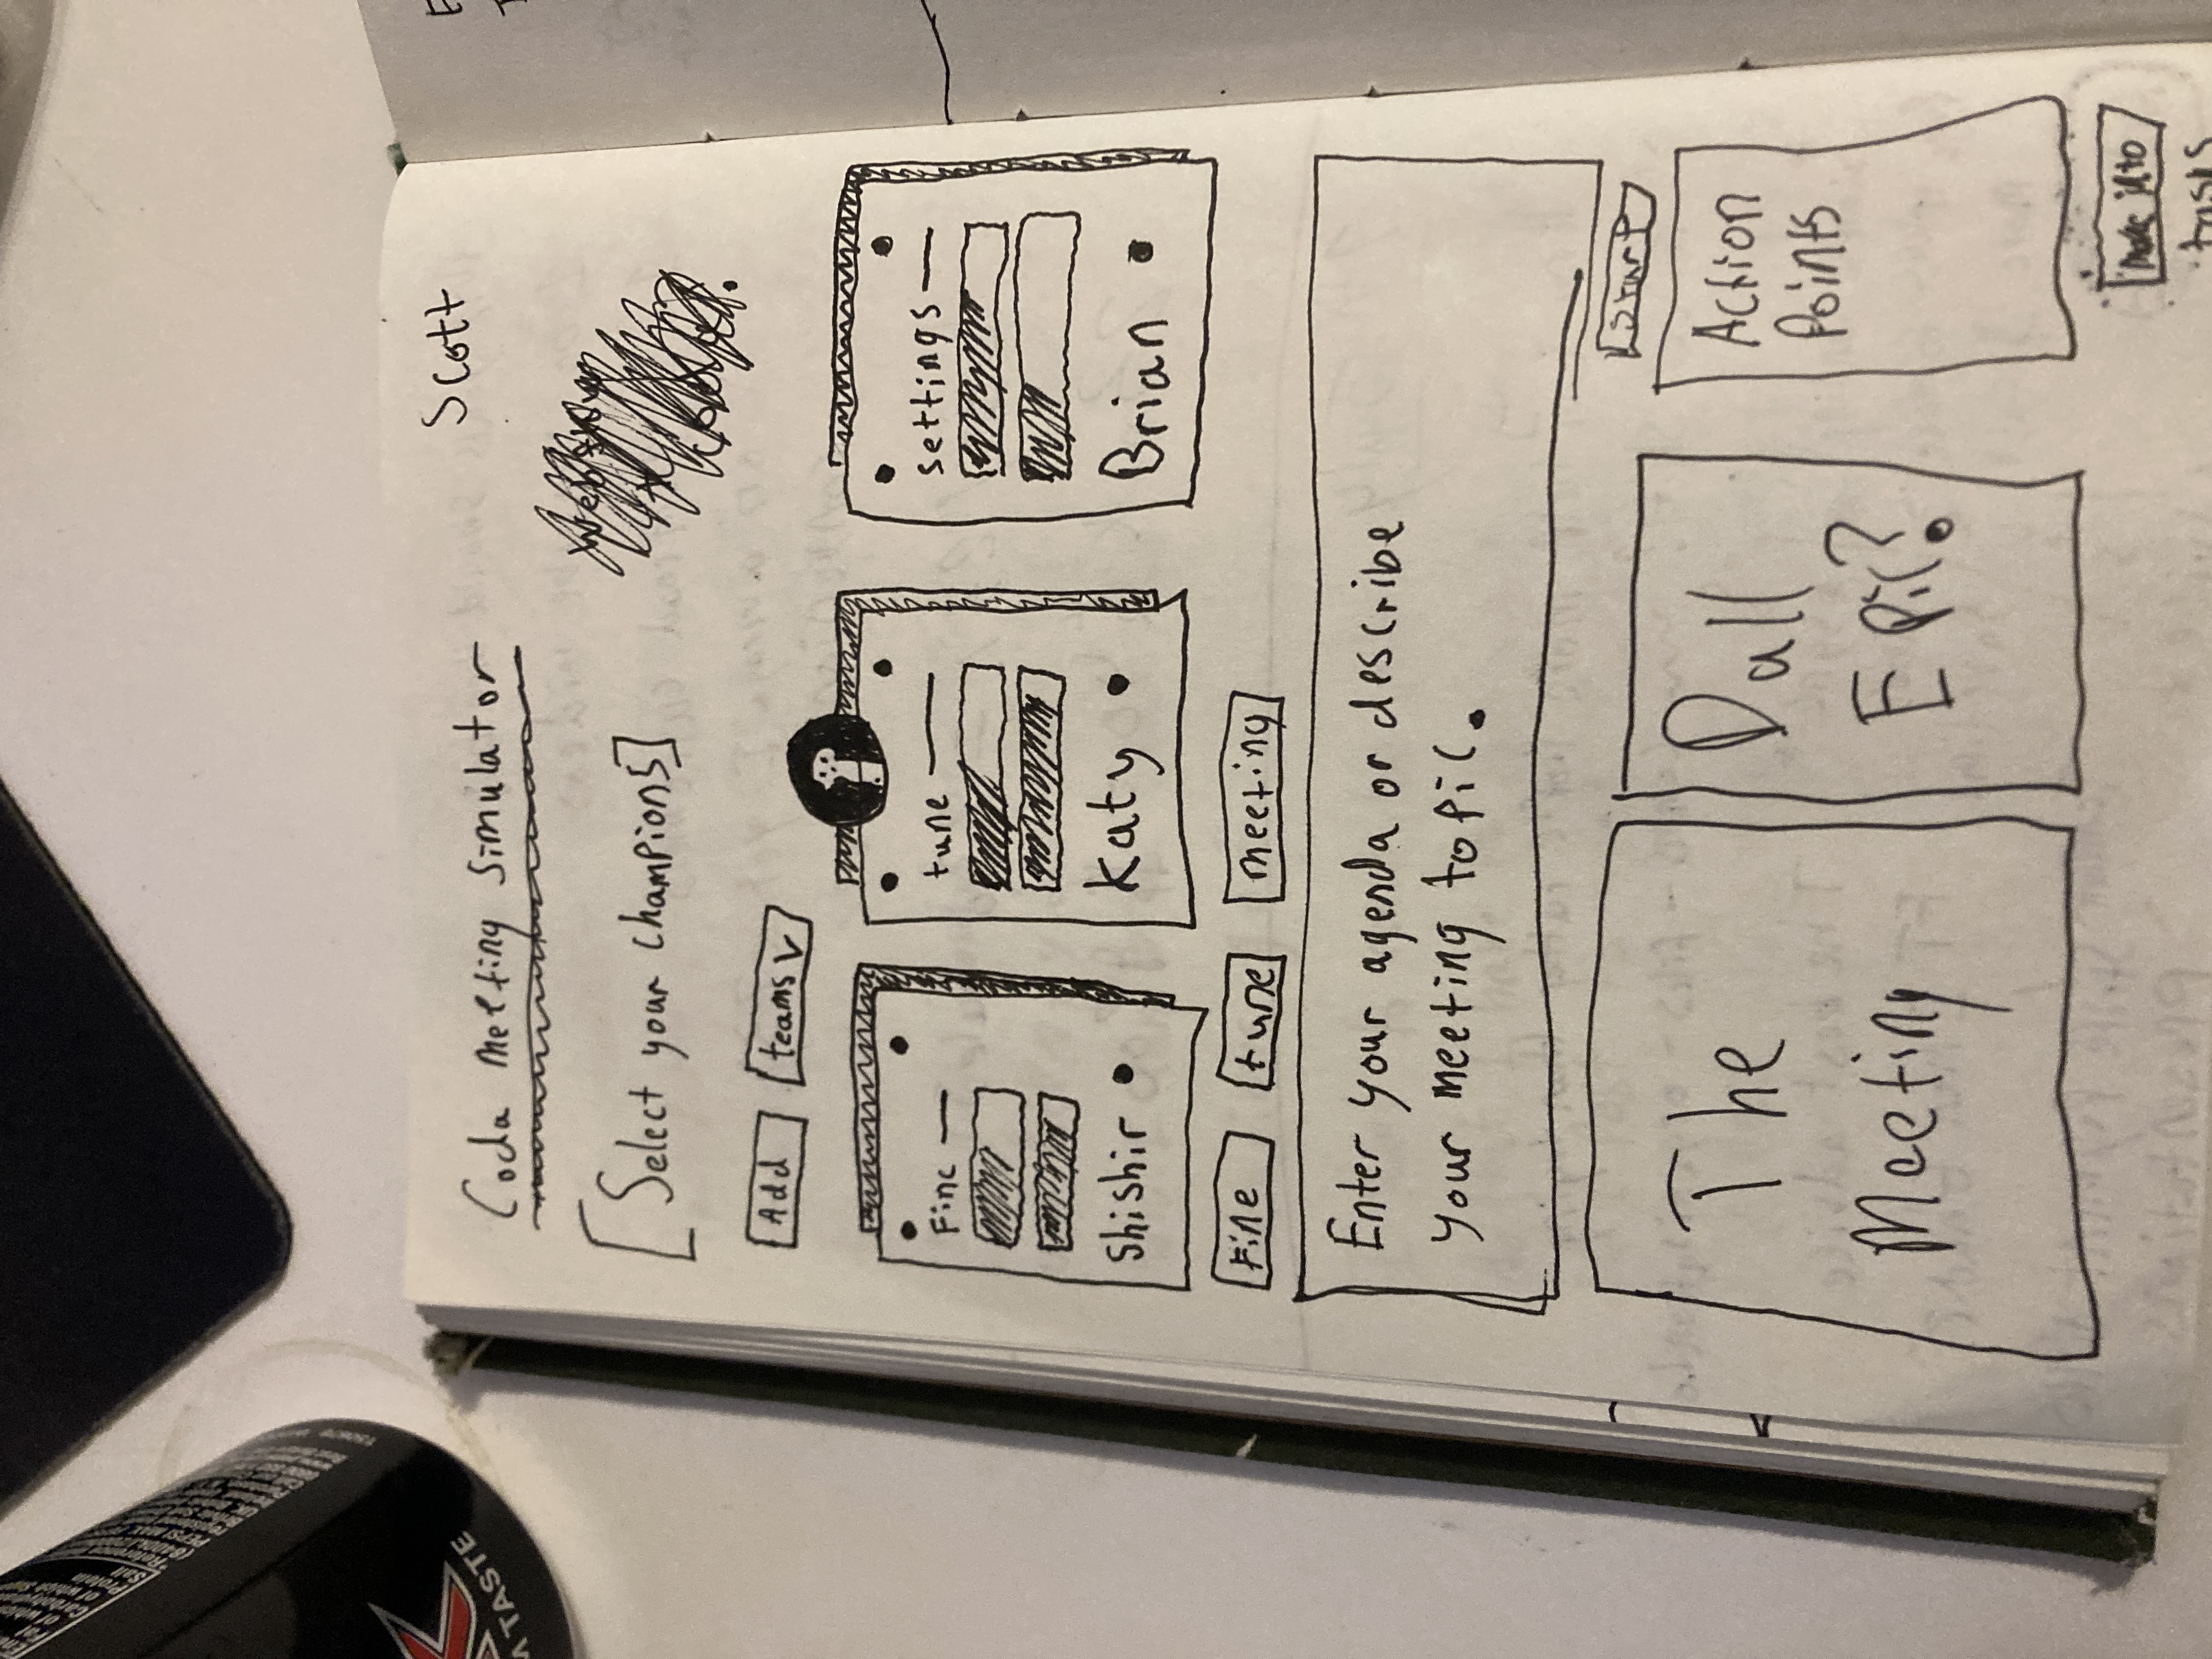 Scott
Coda meeting simulator
[Select your champions]
Add teams
Fine tune settings
Shishir Katy Brian
Fine tune meeting
Enter your agenda or describe
your meeting topic.
Start
The Meeting
Dall E Pic?
Action Points
make into
tasks
TASTE